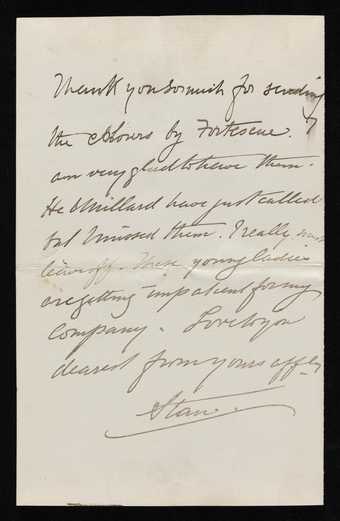 Thank you so much for sending
the colours by Fortescue. I
am very glad to have them.
He & Millard have just called
but I missed them. I really must
leave off. These young ladies
are getting impatient for my
Company. Love to you
dearest from yours affly
Stan.